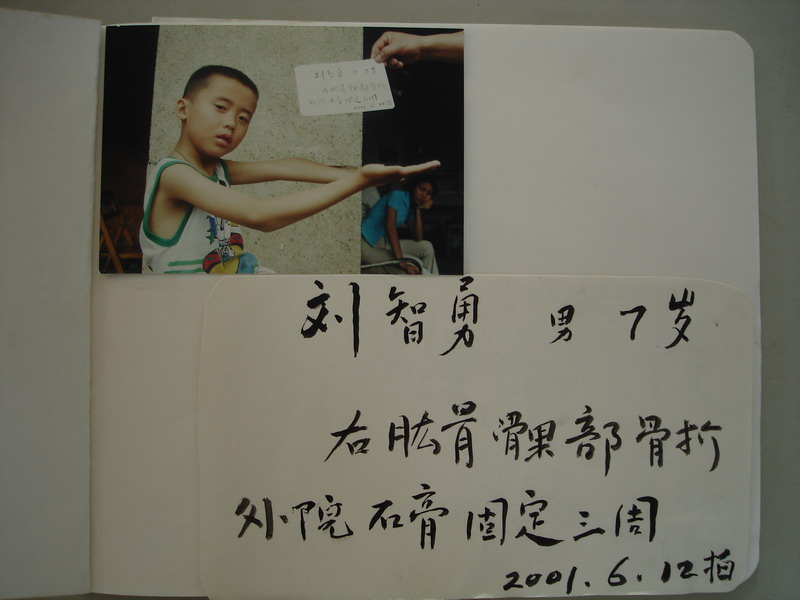 刘智勇 男 7岁
右肱骨髁部骨折
外院石膏固定三周
2001.6.12拍